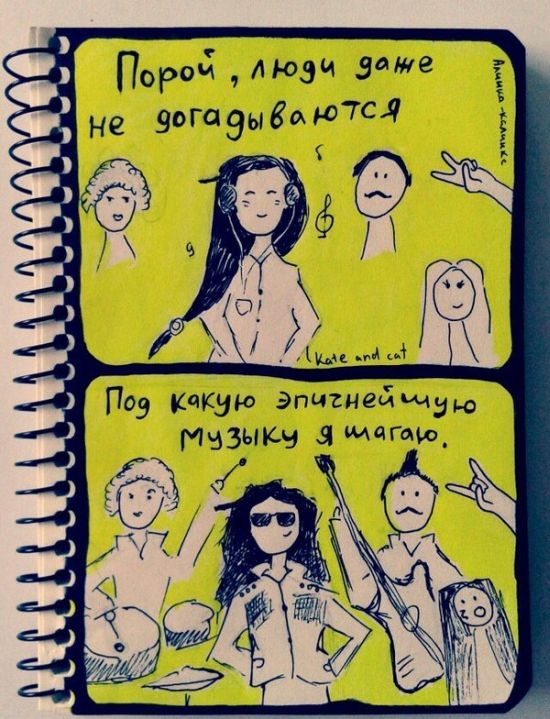 Порой, люди даже
не догадываются
Алинка-калинка
Kate and cat
Под какую эпичнейшую
музыку я шагаю.